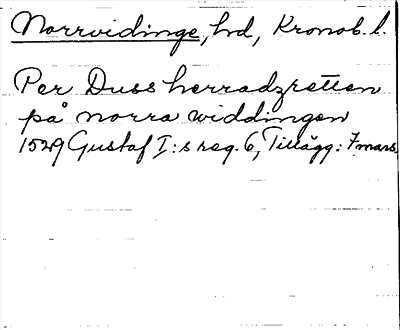 Norrvidinge, hd, Kronob. l.
Per Duss herradzretten
på norra widdingen
1529 Gustaf I:s reg. 6, Tillägg: 7 mars